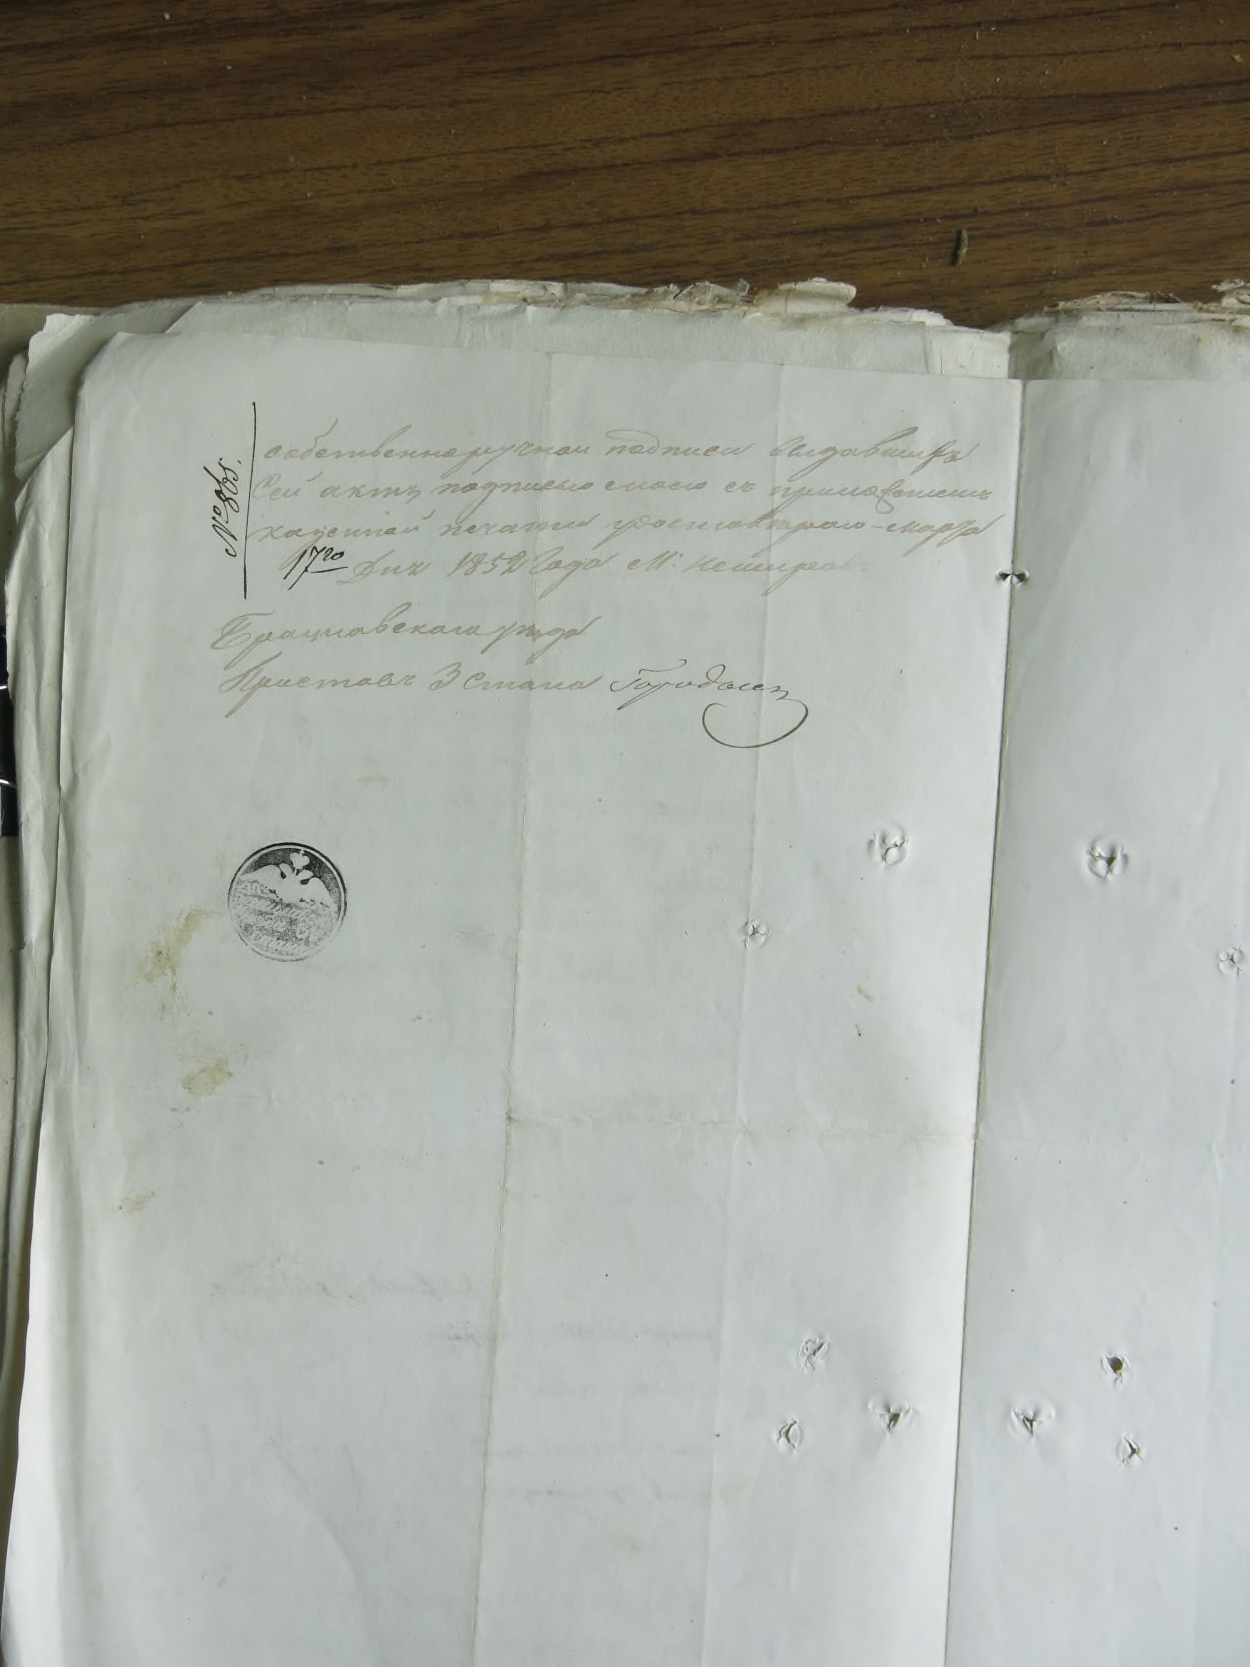 № 865.
собственноручной подписи выдавшихъ
Сей актъ подписью моею съ приложениемъ
казенной печати удостовѣряю – марта
17го Дня 1852 Года М:
Брацлавскаго уѣзда
Приставъ 3 Стана